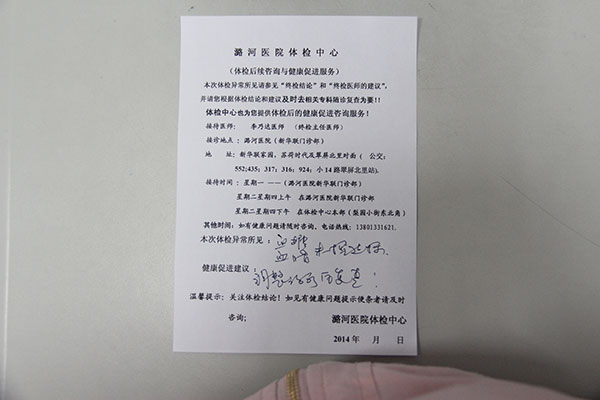 潞河医院体检中心
（体检后续咨询与健康促进服务）
本次体检异常所见请参见“终检结论”和“终检医师的建议”，
并请您根据体检结论和建议及时去相关专科随诊复查为要！！
体检中心也为您提供体检后的健康促进咨询服务！
接待医师： 李乃达医师 （终检主任医师）
接诊地点： 潞河医院（新华联门诊部）
地 址： 新华联家园，苏荷时代及翠屏北里对面（ 公交：
552;435；317；316；924；小14路翠屏北里站）.
接待时间：星期一 ——（潞河医院新华联门诊部）
星期二星期四上午 在潞河医院新华联门诊部
星期二星期四下午 在体检中心本部（梨园小街东北角）
其他时间：如有健康问题请随时咨询，电话热线：13801331621.
本次体检异常所见： 血糖
血脂 未控达标
健康促进建议： 调整治疗后复查！
温馨提示：关注体检结论！如见有健康问题提示使条者请及时
咨询；
潞河医院体检中心
2014年 月 日